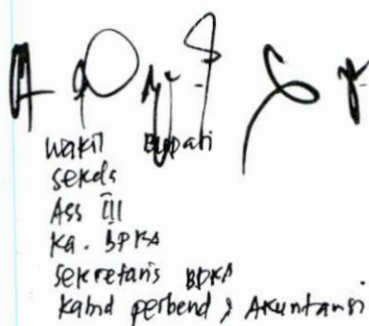 wakil Bupati
sekda
Ass III
Ka. BPKA
sekretaris BPKA
Kabid perbend & Akuntansi